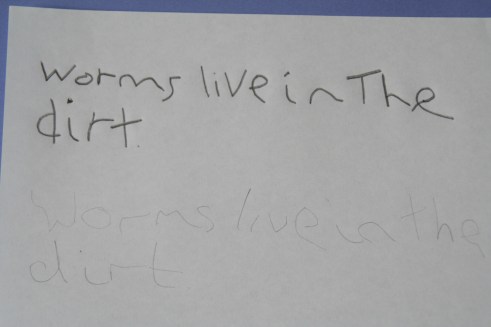 Worms live in The
dirt.
Worms live in the
dirt